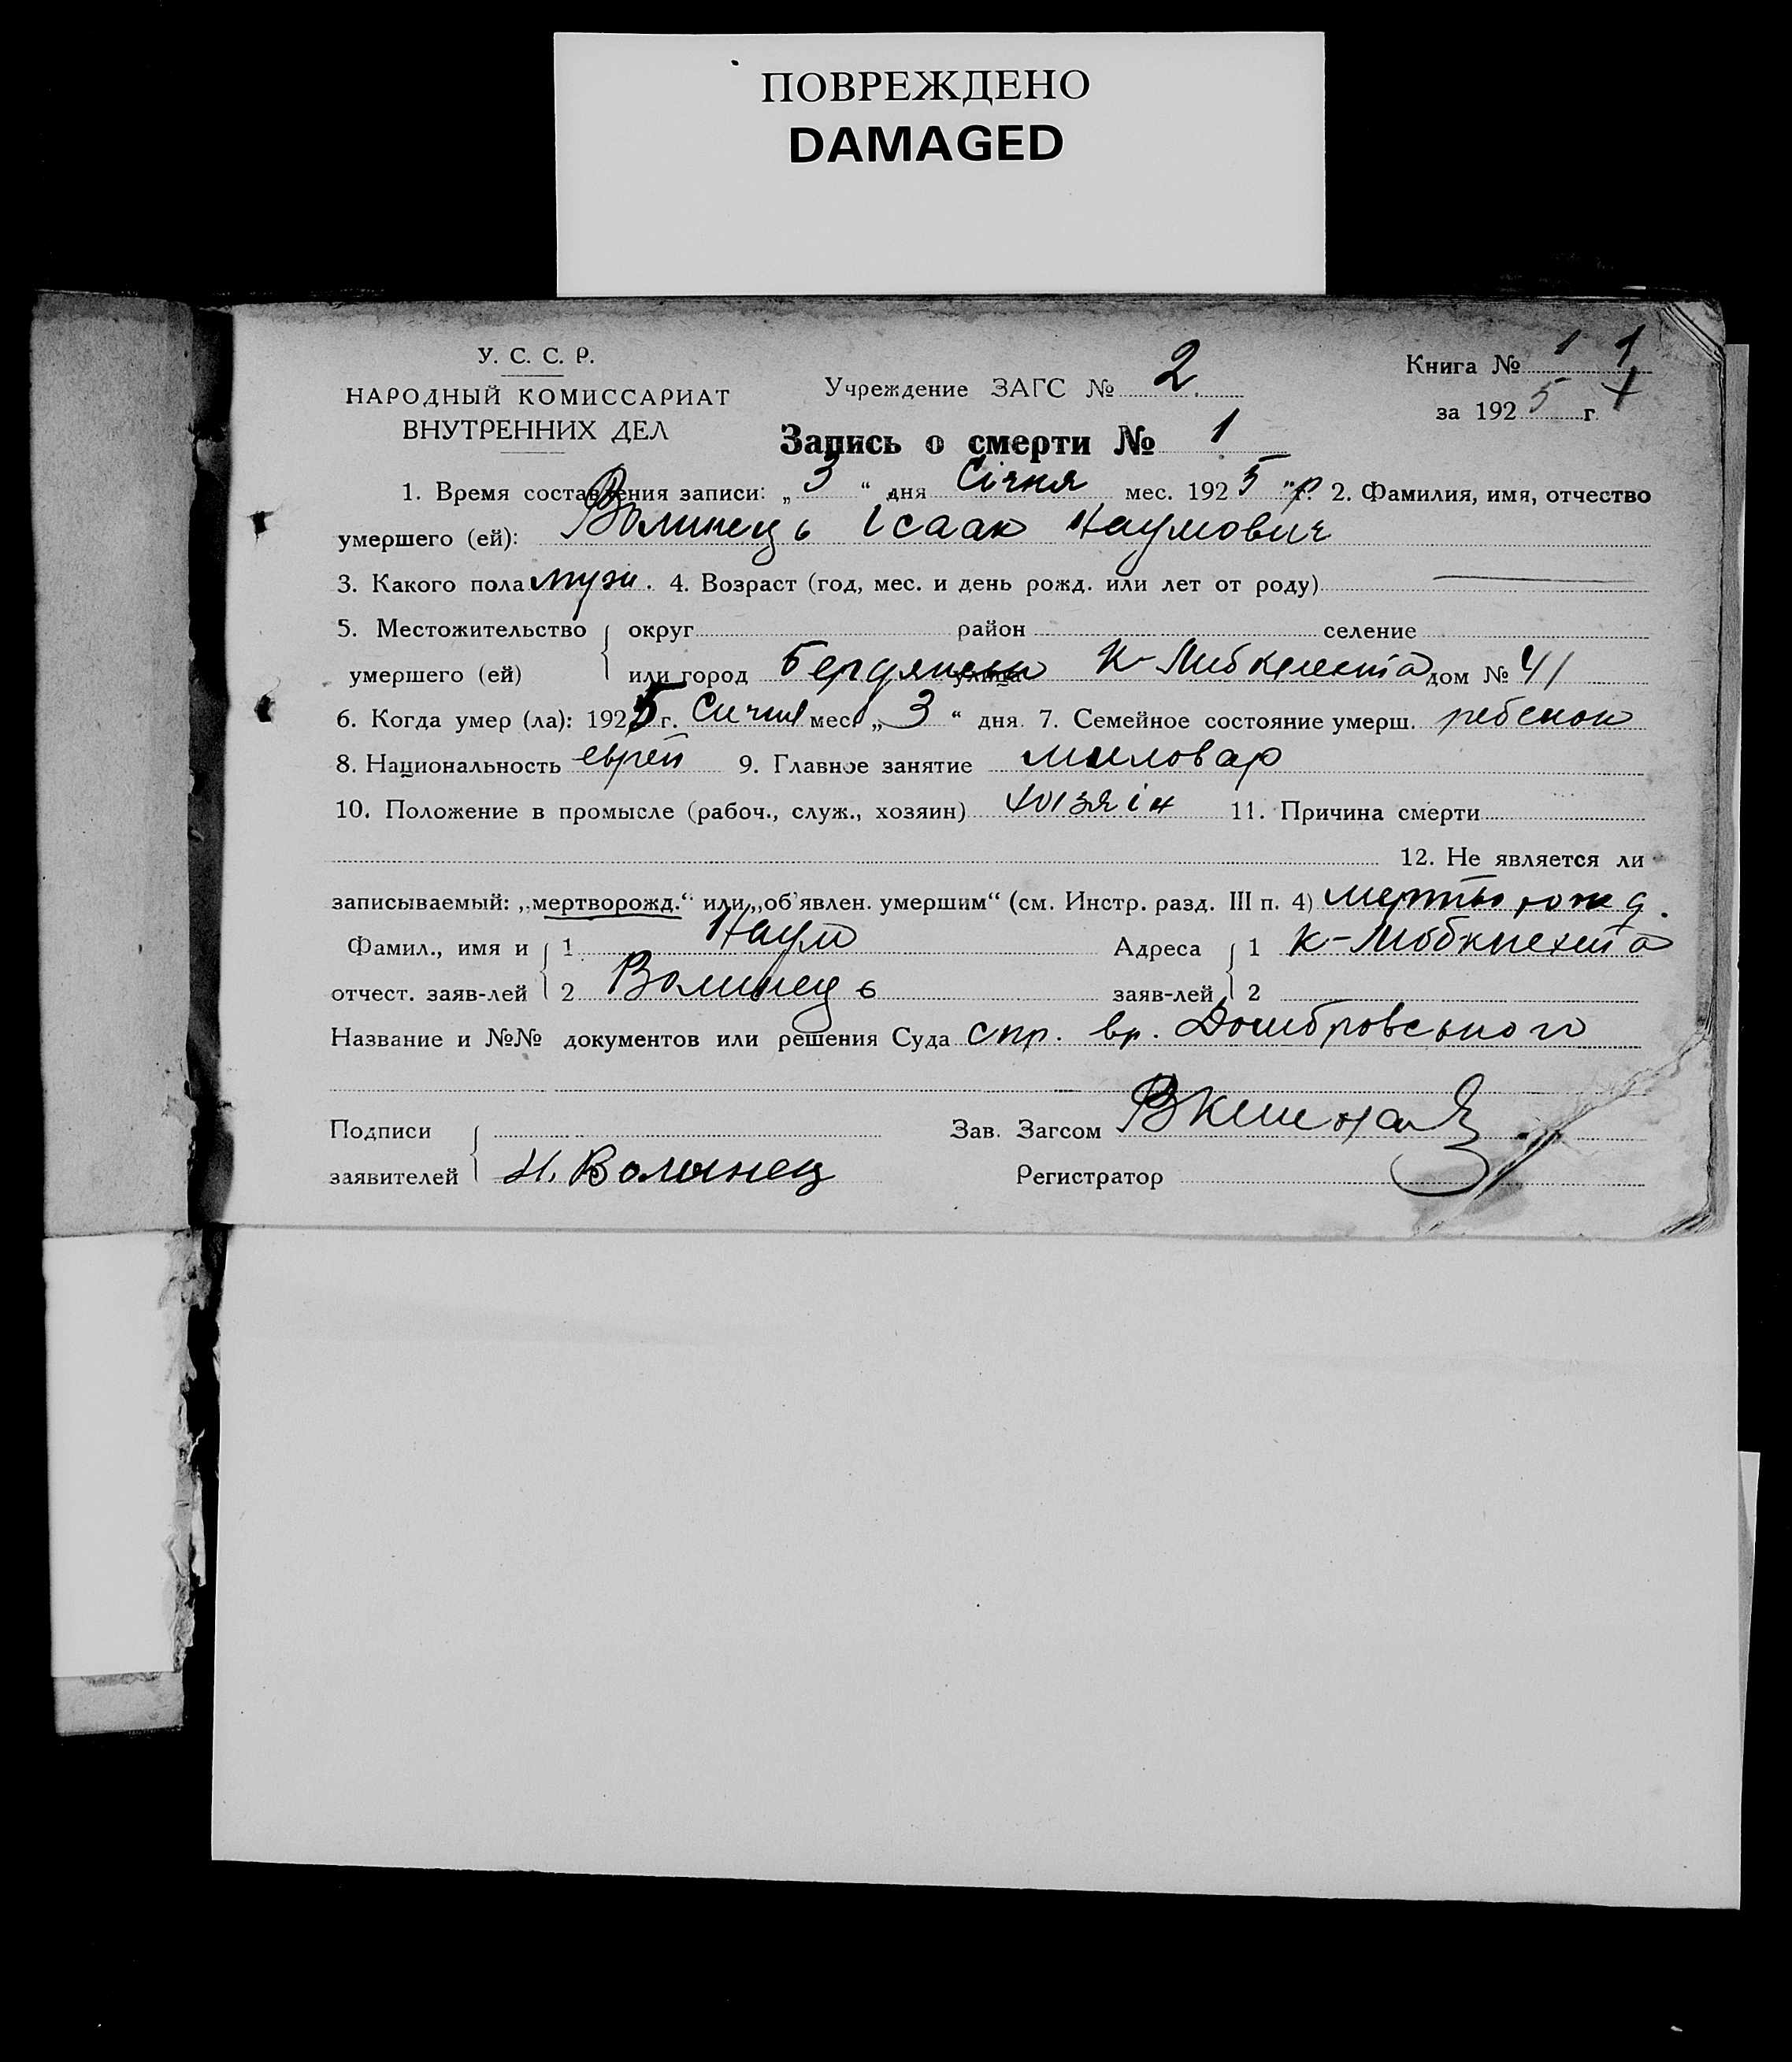 ПОВРЕЖДЕНО
DAMAGED
У. С. С. Р.
НАРОДНЫЙ КОМИССАРИАТ
ВНУТРЕННИХ ДЕЛ
Учреждение ЗАГС № 2.
Книга № 1 1
за 1925 г.
Запись о смерти № 1
1. Время составления записи: „3“ дня Січня мес. 1925 г. 2. Фамилия, имя, отчество
умершего (ей): Волинець Ісаак Наумович
3. Какого пола муж. 4. Возраст (год, мес. и день рожд. или лет от роду)
5. Местожительство умершего (ей) округ район селение
или город Бердянськ улица К-Либкнехта дом № 41
6. Когда умер (ла): 1925 г. Січня мес. „3“ дня. 7. Семейное состояние умерш. ребенок
8. Национальность еврей 9. Главное занятие миловар
10. Положение в промысле (рабоч., служ., хозяин) хозяін 11. Причина смерти
12. Не является ли
записываемый: „мертворожд.“ или „об'явлен. умершим“ (см. Инстр. разд. III п. 4) мертворожд.
Фамил., имя и отчест. заяв-лей 1 Наум Адреса заяв-лей 1 К-Любкнехта
2 Волинець 2
Название и №№ документов или решения Суда спр. вр. Домбровського
Подписи заявителей Зав. Загсом
Н. Волинец Регистратор